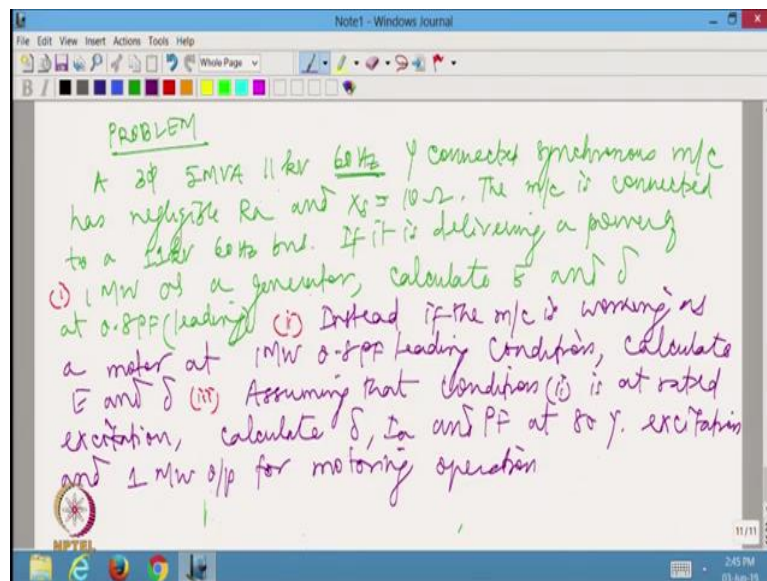 Note1 - Windows Journal
File Edit View Insert Actions Tools Help
Whole Page
B I
PROBLEM
A 3φ 5MVA 11 kV 60 Hz Y connected synchronous m/c
has negligible Ra and Xs = 10 Ω. The m/c is connected
to a 11 kV 60 Hz bus. If it is delivering a power of
(i) 1 MW as a generator, calculate E and δ
at 0.8 PF (leading) (ii) Instead if the m/c is working as
a motor at 1MW 0.8 PF leading condition, calculate
E and δ (iii) Assuming that condition (ii) is at rated
excitation, calculate δ, Ia and PF at 80 %. excitation
and 1 MW o/p for motoring operation
NPTEL
11/11
2:45 PM
03-Jun-15